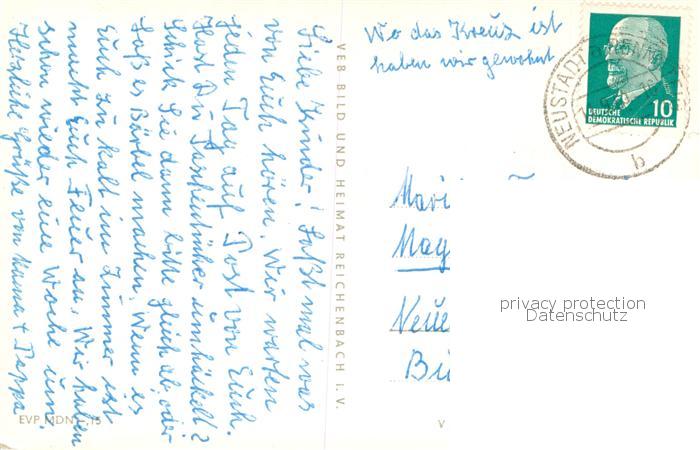 Liebe Kinder! Laßt mal was
von Euch hören. Wir warten
jeden Tag auf Post von Euch.
Hast Du Taschentücher umhäkelt?
Schick Sie dann bitte gleich ab, oder
laß es Bärbel machen. Wenn es
Euch zu kalt im Zimmer ist
macht Euch Feuer an. Wir haben
schon wieder eine Woche um.
Herzliche Grüße von Mama + Pappa
EVP MDN -,15
VEB BILD UND HEIMAT REICHENBACH i. V.
Wo das Kreuz ist
haben wir gewohnt
10
DEUTSCHE
DEMOKRATISCHE REPUBLIK
NEUSTADT
b
Mari
May
Neue
Bü
privacy protection
Datenschutz
V